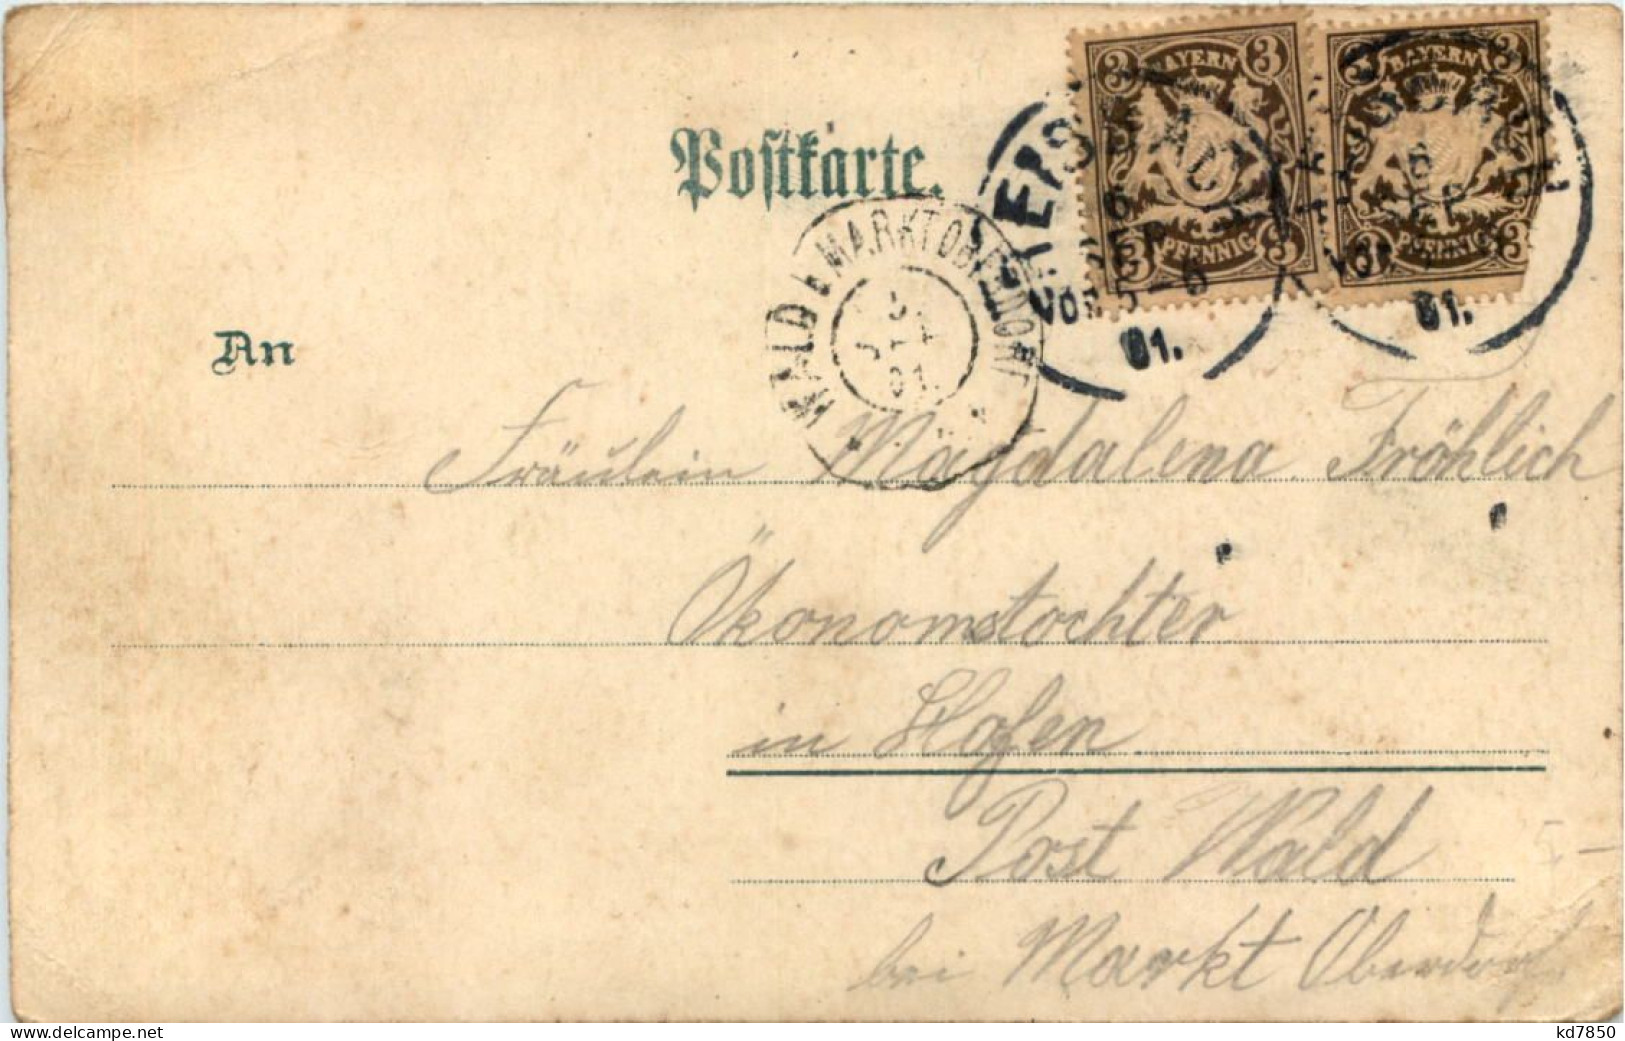 3 BAYERN 3
3 BAYERN 3
3 PFENNIG 3
3 PFENNIG 3
Postkarte.
VOR 5-6
01.
01.
WALD b MARKTOBERDORF
01.
An
Fräulein Magdalena Fröhlich
Ökonomstochter
in Hofen
Post Wald
bei Markt Oberdorf
www.delcampe.net
kd7850